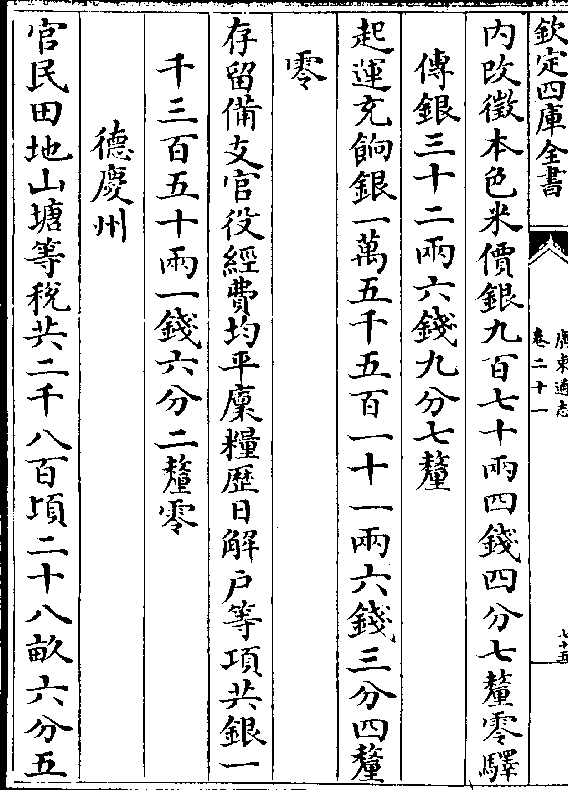 欽定四庫全書
廣東通志
卷二十一
七十五
内改徵本色米價銀九百七十兩四錢四分七釐零驛
傳銀三十二兩六錢九分七釐
起運充餉銀一萬五千五百一十一兩六錢三分四釐
零
存留備支官役經費均平廩糧歷日解户等項共銀一
千三百五十兩一錢六分二釐零
德慶州
官民田地山塘等稅共二千八百頃二十八畝六分五